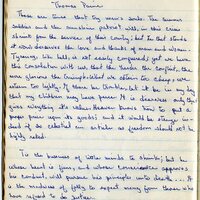 Thomas Paine
These are times that try men's souls. The summer
soldier and the sunshine patriot will, in this crisis
shrink from the service of their country; but he that stands
it now deserves the love and thanks of man and woman.
Tyranny, like hell, is not easily conquered, yet we have
this consolation with us, that the harder the conflict, the
more glorious the triumph. What we obtain too cheap, we
esteem too lightly. If there be trouble, let it be in my day
that my children may have peace. It is dearness only that
gives everything its value. Heaven knows how to put a
proper price upon its goods; and it would be strange in-
deed if so celestial an article as freedom should not be
highly rated.
Tis the business of little minds to shrink; but he
whose heart is firm, and whose conscience approves
his conduct, will pursue his principles unto death.
is the madness of folly to expect mercy from those who
have refused to do justice.